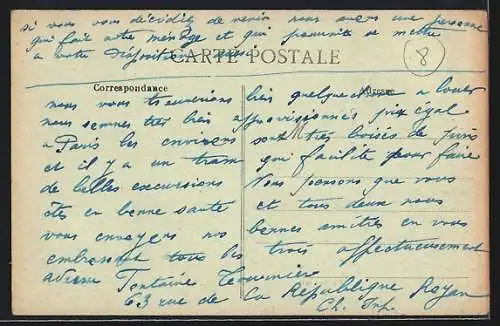 si vous vous décidiez de venir nous avons une personne
qui fait notre ménage et qui pourrait se mettre
a votre disposition aussi
CARTE POSTALE
8
Correspondance
Adresse
nous vous trouverions bien quelque chose a louer
nous sommes très bien approvisionnés prix égal
a Paris les environs sont très boisés de pins
et il y a un tram qui facilite pour faire
de belles excursions Nous pensons que vous
êtes en bonne santé et tous deux nous
vous envoyons nos bonnes amitiés en vous
embrassant tous les trois affectueusement
adresse Fontaine
63 rue de la République Royan
Ch. Inf.